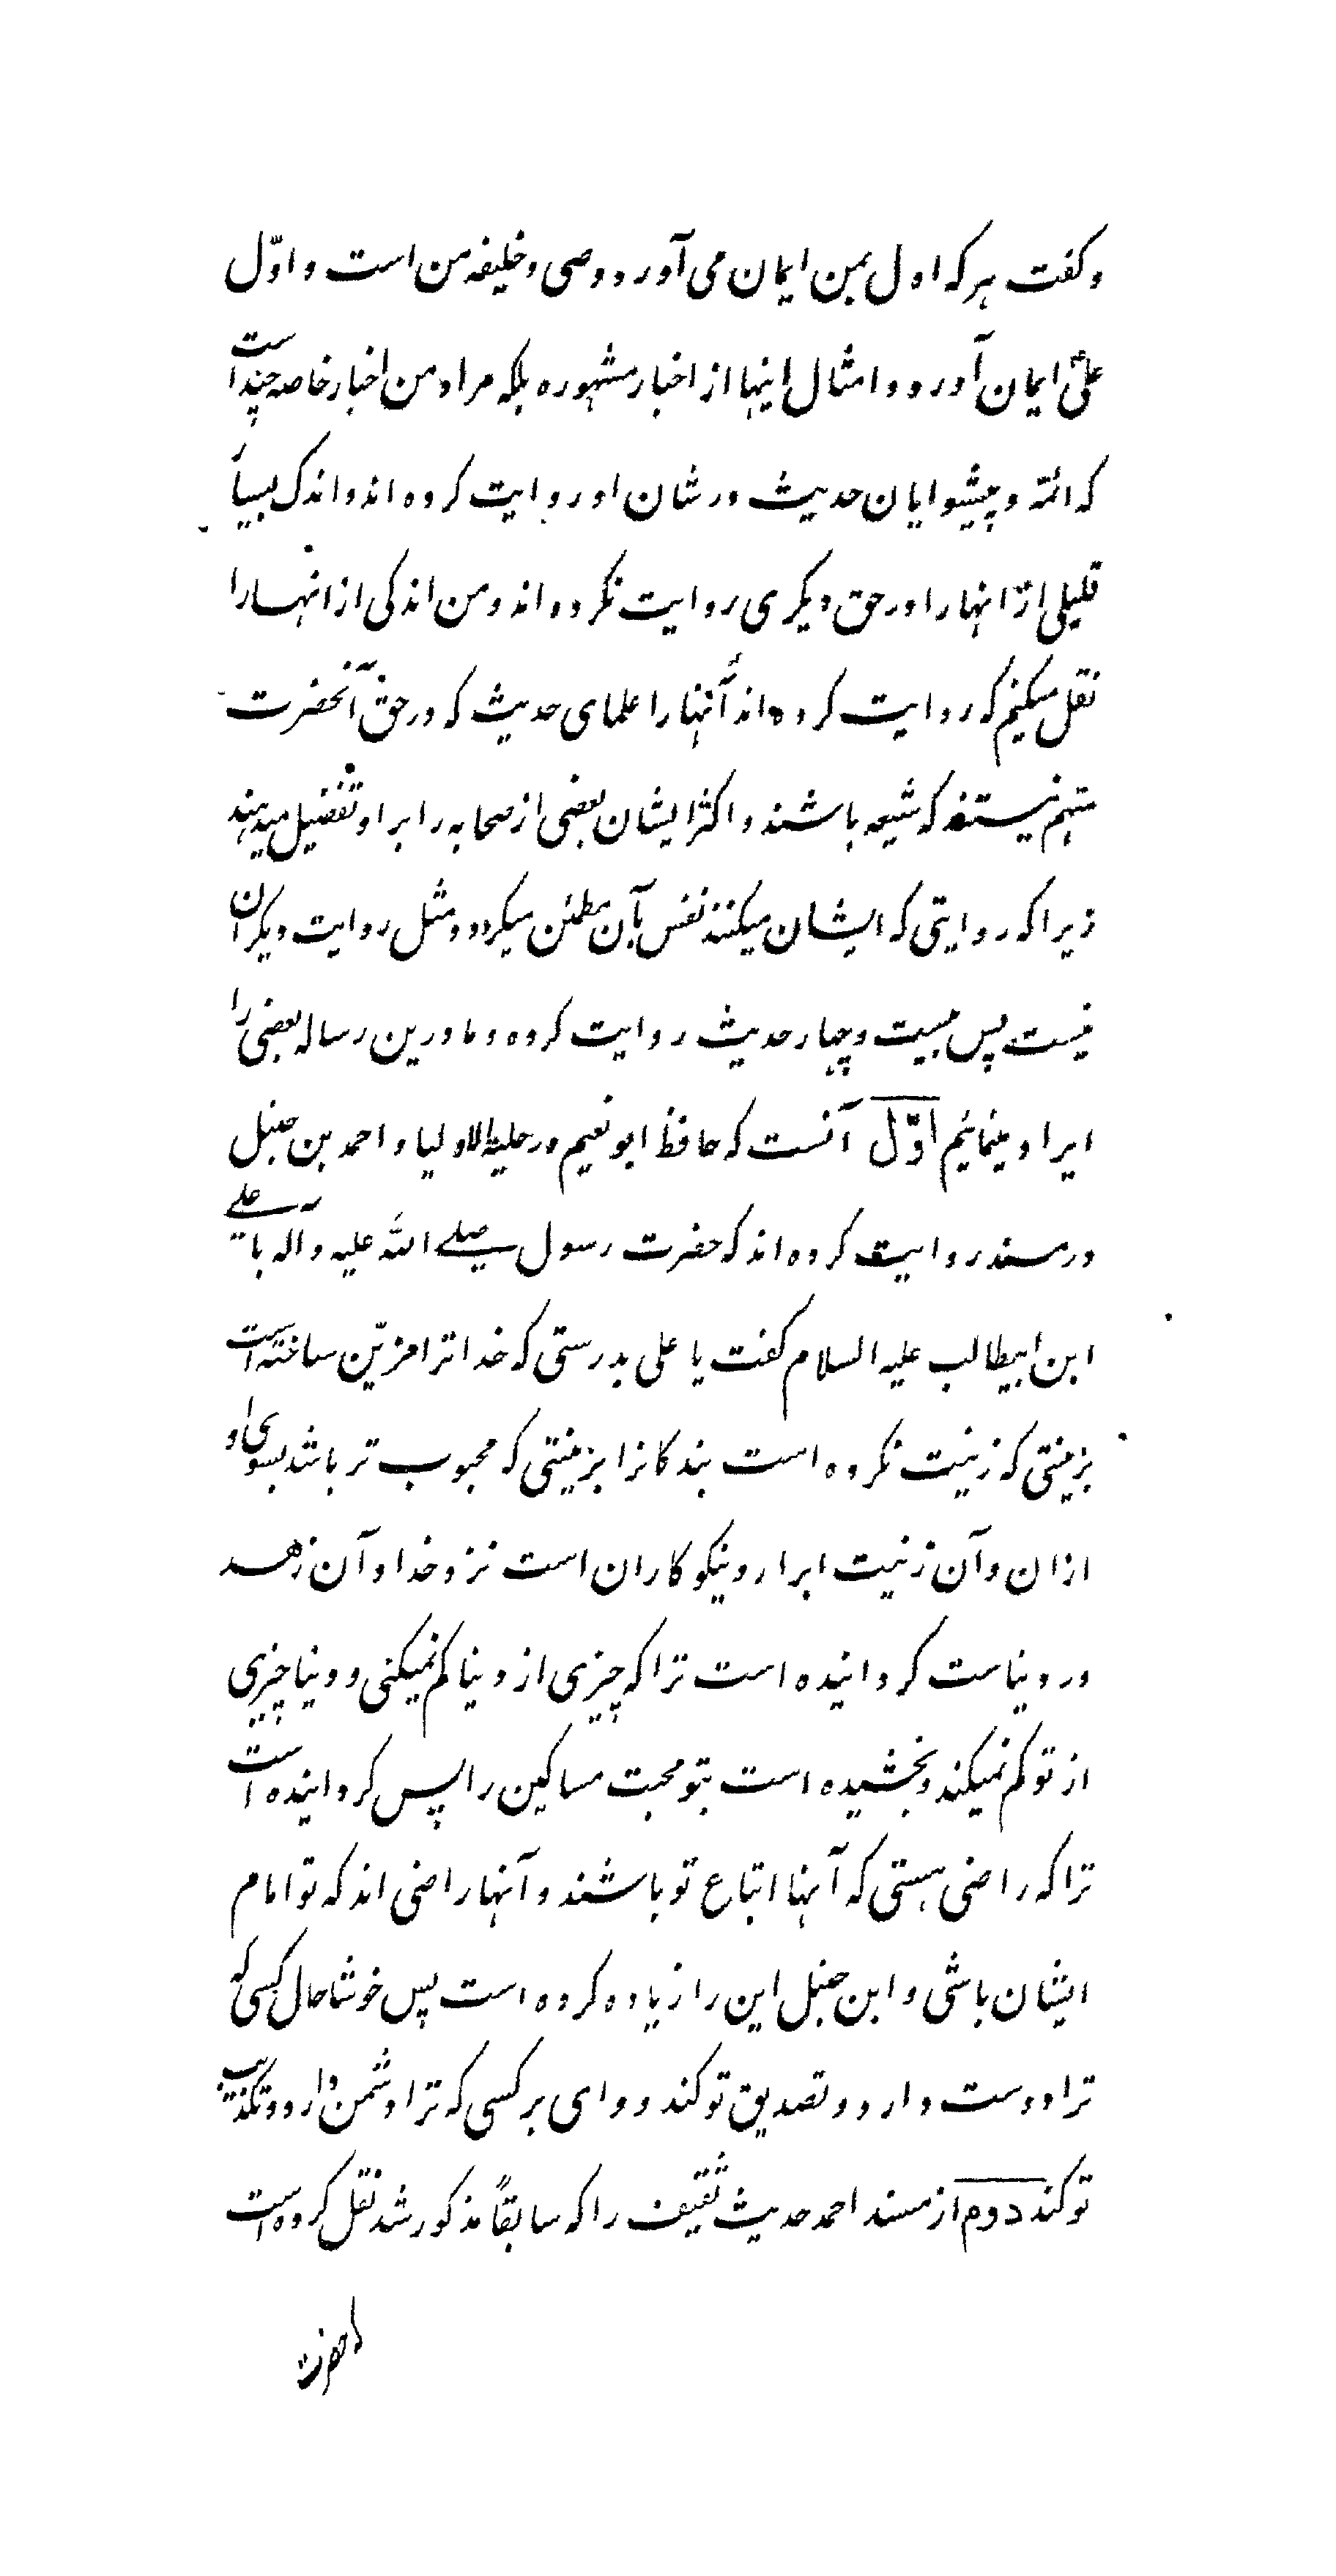 و کفت هر که اول بمن ایمان می آورد وصی و خلیفه من است و اوّل
علیؑ ایمان آورد و امثال اینها از اخبار مشهوره بلکه مراد من اخبار خاصه چند است
که ائمّه و پیشوایان حدیث در شان او روایت کرده اند و اندک بسیار
قلیلی از انها را در حق دیکری روایت نکرده اند و من اندکی از انهارا
نقل میکنم که روایت کرده اند آنها را علمای حدیث که در حق آنحضرت
متهم نیستند که شیعه باشند و اکثر ایشان بعضی از صحابه را بر او تفضیل میدهند
زیرا که روایتی که ایشان میکنند نفس بآن مطمئن میکردد و مثل روایت دیکران
نیست پس بیست و چهار حدیث روایت کرده و ما درین رساله بعضی را
ایراد مینمائیم اوّل آنست که حافظ ابو نعیم در حلیة الاولیا و احمد بن حنبل
در مسند روایت کرده اند که حضرت رسول صلی الله علیه و آله با علی
ابن ابیطالب علیه السلام کفت یا علی بدرستی که خدا ترا مزیّن ساخته است
بزینتی که زینت نکرده است بندکانرا بزینتی که محبوب تر باشد بسوی او
ازان و آن زینت ابرار و نیکوکاران است نزد خدا و آن زهد
در دنیاست کردانیده است ترا که چیزی از دنیا کم نمیکنی و دنیا چیزی
از تو کم نمیکند و بخشیده است بتو محبت مساکین را پس کردانیده است
ترا که راضی هستی که آنها اتباع تو باشند و آنها راضی اند که تو امام
ایشان باشی و ابن حنبل این را زیاده کرده است پس خوشا حال کسی که
ترا دوست دارد و تصدیق تو کند و وای بر کسی که ترا دشمن دارد و تکذیب
تو کند دوم از مسند احمد حدیث ثقیف را که سابقاً مذکور شد نقل کرده است